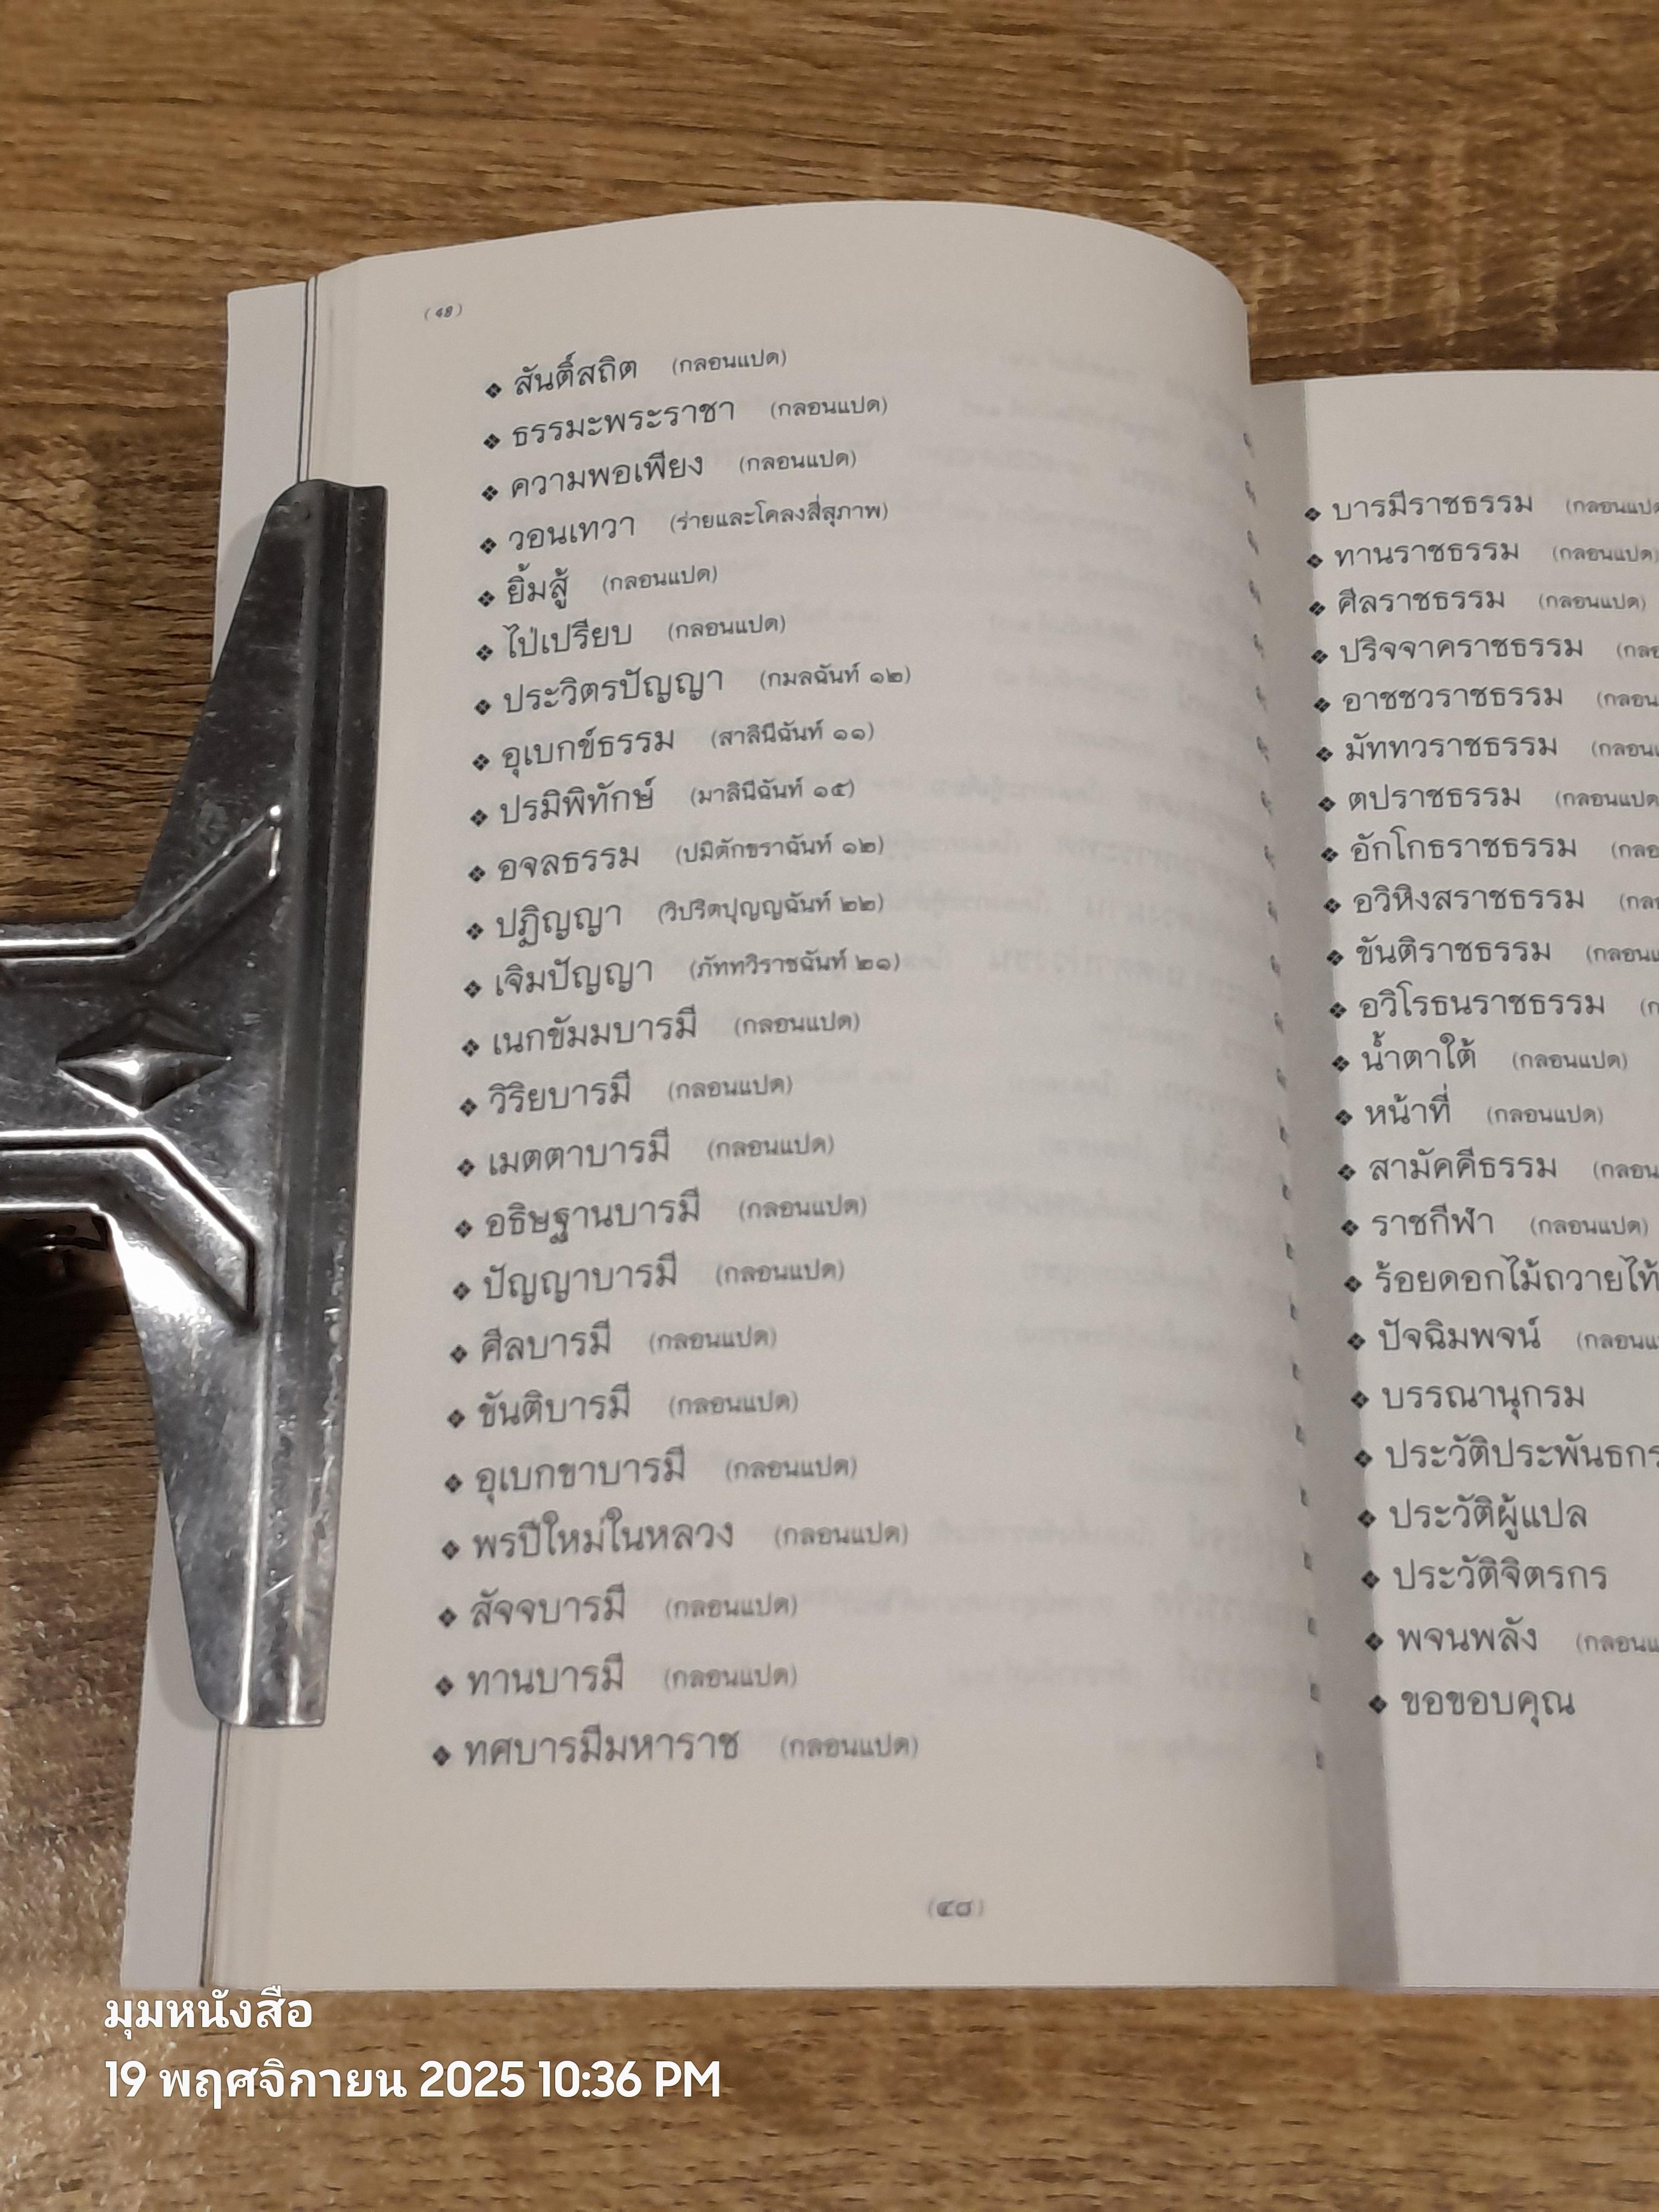 (48)
❖ สันติ์สถิต (กลอนแปด)
❖ ธรรมะพระราชา (กลอนแปด)
❖ ความพอเพียง (กลอนแปด)
❖ วอนเทวา (ร่ายและโคลงสี่สุภาพ)
❖ ยิ้มสู้ (กลอนแปด)
❖ ไป่เปรียบ (กลอนแปด)
❖ ประวิตรปัญญา (กมลฉันท์ ๑๒)
❖ อุเบกข์ธรรม (สาลินีฉันท์ ๑๑)
❖ ปรมิพิทักษ์ (มาลินีฉันท์ ๑๕)
❖ อจลธรรม (ปมิตักขราฉันท์ ๑๒)
❖ ปฏิญญา (วิปริตปุญญฉันท์ ๒๒)
❖ เจิมปัญญา (ภัททวิราชฉันท์ ๒๑)
❖ เนกขัมมบารมี (กลอนแปด)
❖ วิริยบารมี (กลอนแปด)
❖ เมตตาบารมี (กลอนแปด)
❖ อธิษฐานบารมี (กลอนแปด)
❖ ปัญญาบารมี (กลอนแปด)
❖ ศีลบารมี (กลอนแปด)
❖ ขันติบารมี (กลอนแปด)
❖ อุเบกขาบารมี (กลอนแปด)
❖ พรปีใหม่ในหลวง (กลอนแปด)
❖ สัจจบารมี (กลอนแปด)
❖ ทานบารมี (กลอนแปด)
❖ ทศบารมีมหาราช (กลอนแปด)
(๔๘)
❖ บารมีราชธรรม (กลอนแปด
❖ ทานราชธรรม (กลอนแปด)
❖ ศีลราชธรรม (กลอนแปด)
❖ ปริจจาคราชธรรม
❖ อาชชวราชธรรม
❖ มัททวราชธรรม
❖ ตปราชธรรม (กลอนแปด
❖ อักโกธราชธรรม
❖ อวิหิงสราชธรรม
❖ ขันติราชธรรม
❖ อวิโรธนราชธรรม
❖ น้ำตาใต้ (กลอนแปด)
❖ หน้าที่ (กลอนแปด)
❖ สามัคคีธรรม (กลอน
❖ ราชกีฬา (กลอนแปด)
❖ ร้อยดอกไม้ถวายไท้
❖ ปัจฉิมพจน์
❖ บรรณานุกรม
❖ ประวัติประพันธกร
❖ ประวัติผู้แปล
❖ ประวัติจิตรกร
❖ พจนพลัง
❖ ขอขอบคุณ
มุมหนังสือ
19 พฤศจิกายน 2025 10:36 PM